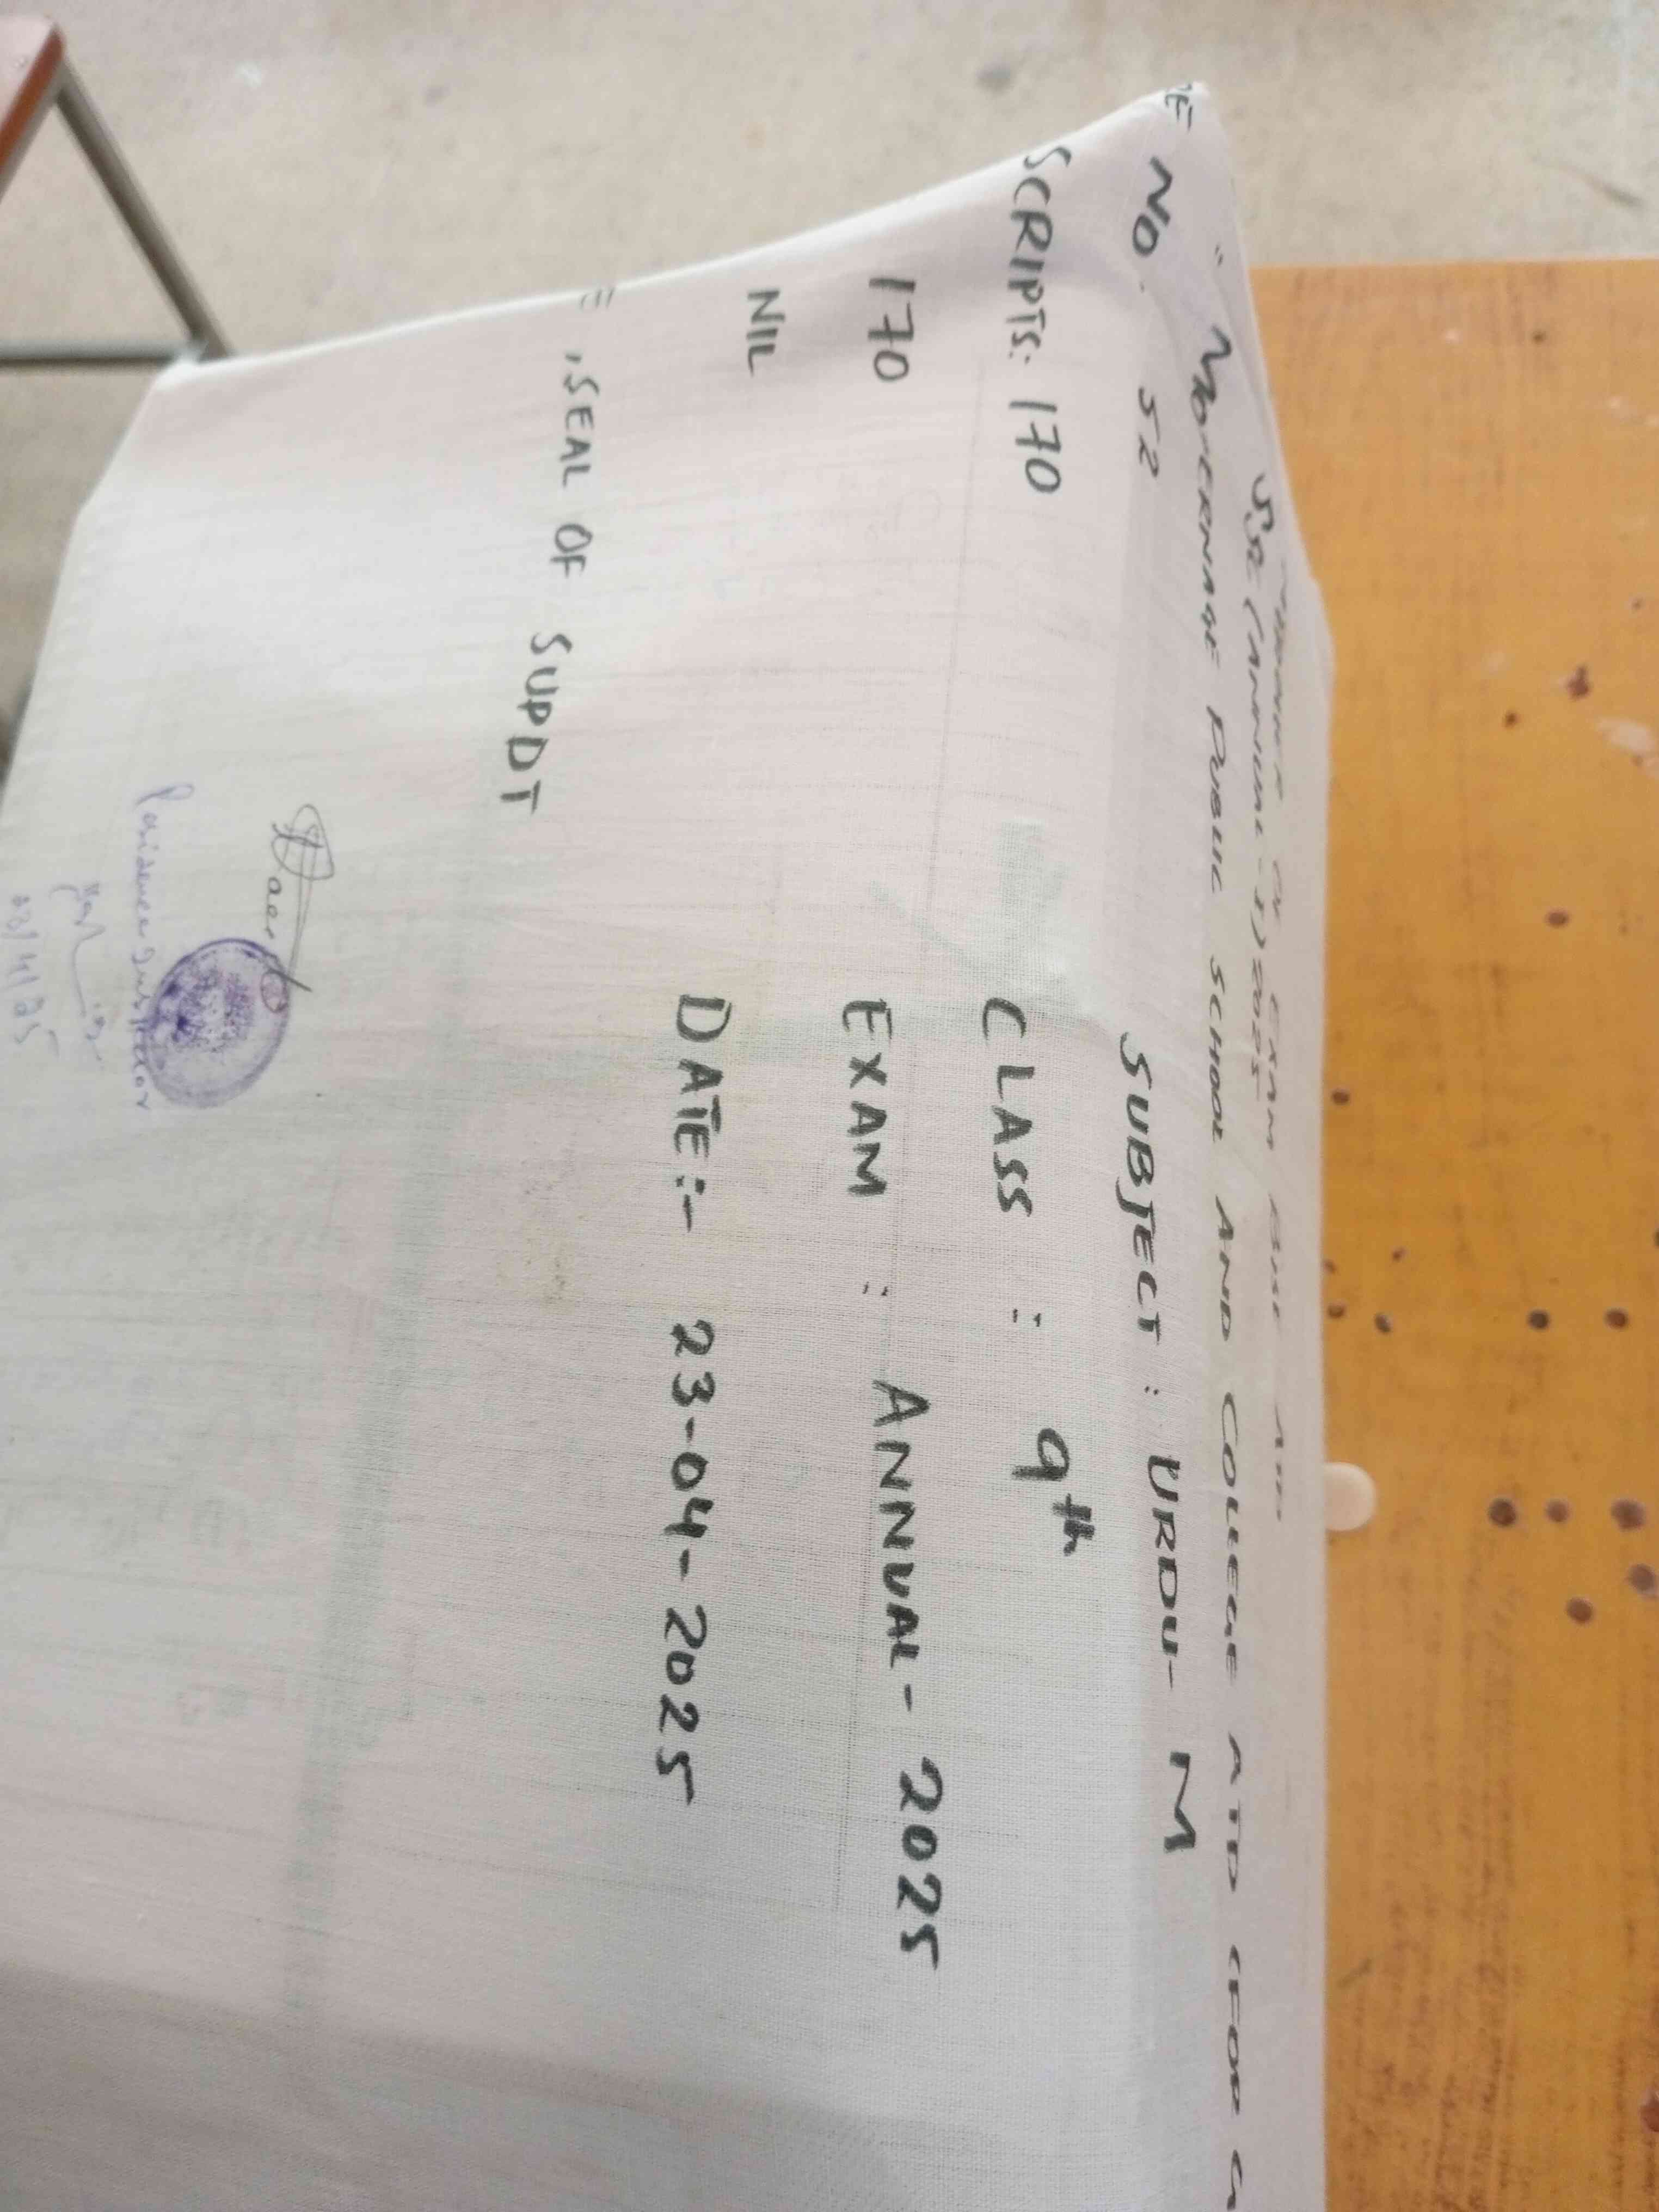 IN EXAM
SSC (ANNUAL-I) 2025
" MODERNAGE PUBLIC SCHOOL AND COLLEGE ATD (FOR G
NO. 52 SUBJECT : URDU- M
SCRIPTS: 170 CLASS : 9th
170 EXAM : ANNUAL - 2025
NIL DATE:- 23-04-2025
, SEAL OF SUPDT
23/4/25